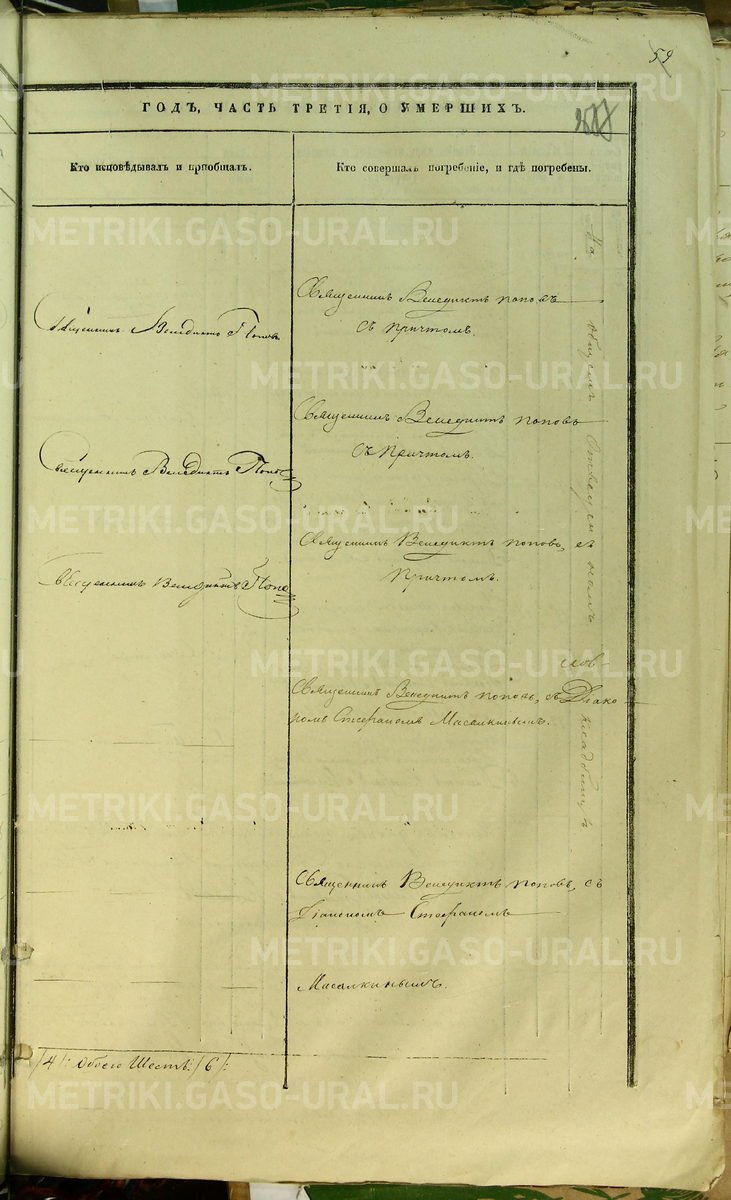 59
ГОДЪ, ЧАСТЬ ТРЕТІЯ, О УМЕРШИХЪ.
Кто исповѣдывалъ и пріобщалъ.
Кто совершалъ погребеніе, и гдѣ погребены.
Священникъ Венедиктъ Поповъ
Священникъ Венедиктъ Поповъ
съ причтомъ.
Священникъ Венедиктъ Поповъ
Священникъ Венедиктъ Поповъ
съ причтомъ.
Священникъ Венедиктъ Попов
Священникъ Венедиктъ Поповъ, съ
причтомъ.
Священникъ Венедиктъ Поповъ, съ Діако
номъ Стефаномъ Масалкинымъ.
Священникъ Венедиктъ Поповъ, съ
Діакономъ Стефаномъ
Масалкинымъ.
На общемъ кладбищѣ
/4/: Обоего Шесть: /6/:
METRIKI.GASO-URAL.RU